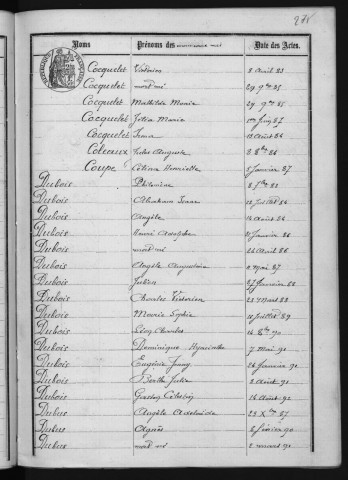 278
Noms Prénoms des Date des Actes.
Cocquelet Victorien 8 Avril 83
Cocquelet mort né 29 9bre 85
Cocquelet Mathilde Maria 29 9bre 85
Cocquelet Julia Maria 87
Cocquelet Irma Août 86
Jules Auguste 8bre 86
Coupe Henriette Janvier 87
Dubois Philomène 8 7bre 82
Dubois Abraham Juillet 84
Dubois Angèle Août 86
Dubois Henri Adolphe Janvier 86
Dubois mort né Avril 86
Dubois Angèle Augustine Mai 87
Dubois Julien 27 Janvier 88
Dubois Charles Victorien 23 Mars 88
Dubois Marie Sophie Juillet 89
Dubois Léon Charles 16 8bre 90
Dubois Dominique Hyacinthe 7 Mai 90
Dubois Eugénie Fanny 26 Janvier 90
Dubois Berthe Julia 2 Août 90
Dubois Gaston 16 Août 90
Dubus Angèle Adelaïde 23 Xbre 87
Dubus Agnès 8 février 90
Dubus mort né 2 mars 90